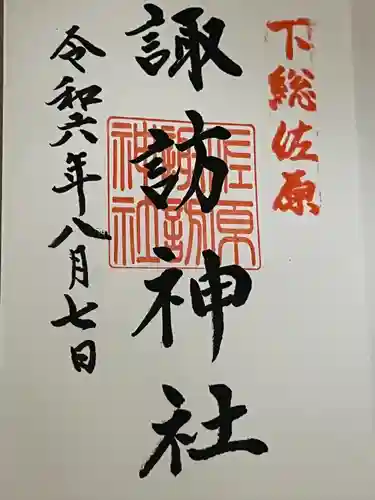 下総佐原
諏訪神社
佐原
諏訪
神社
令和六年八月七日